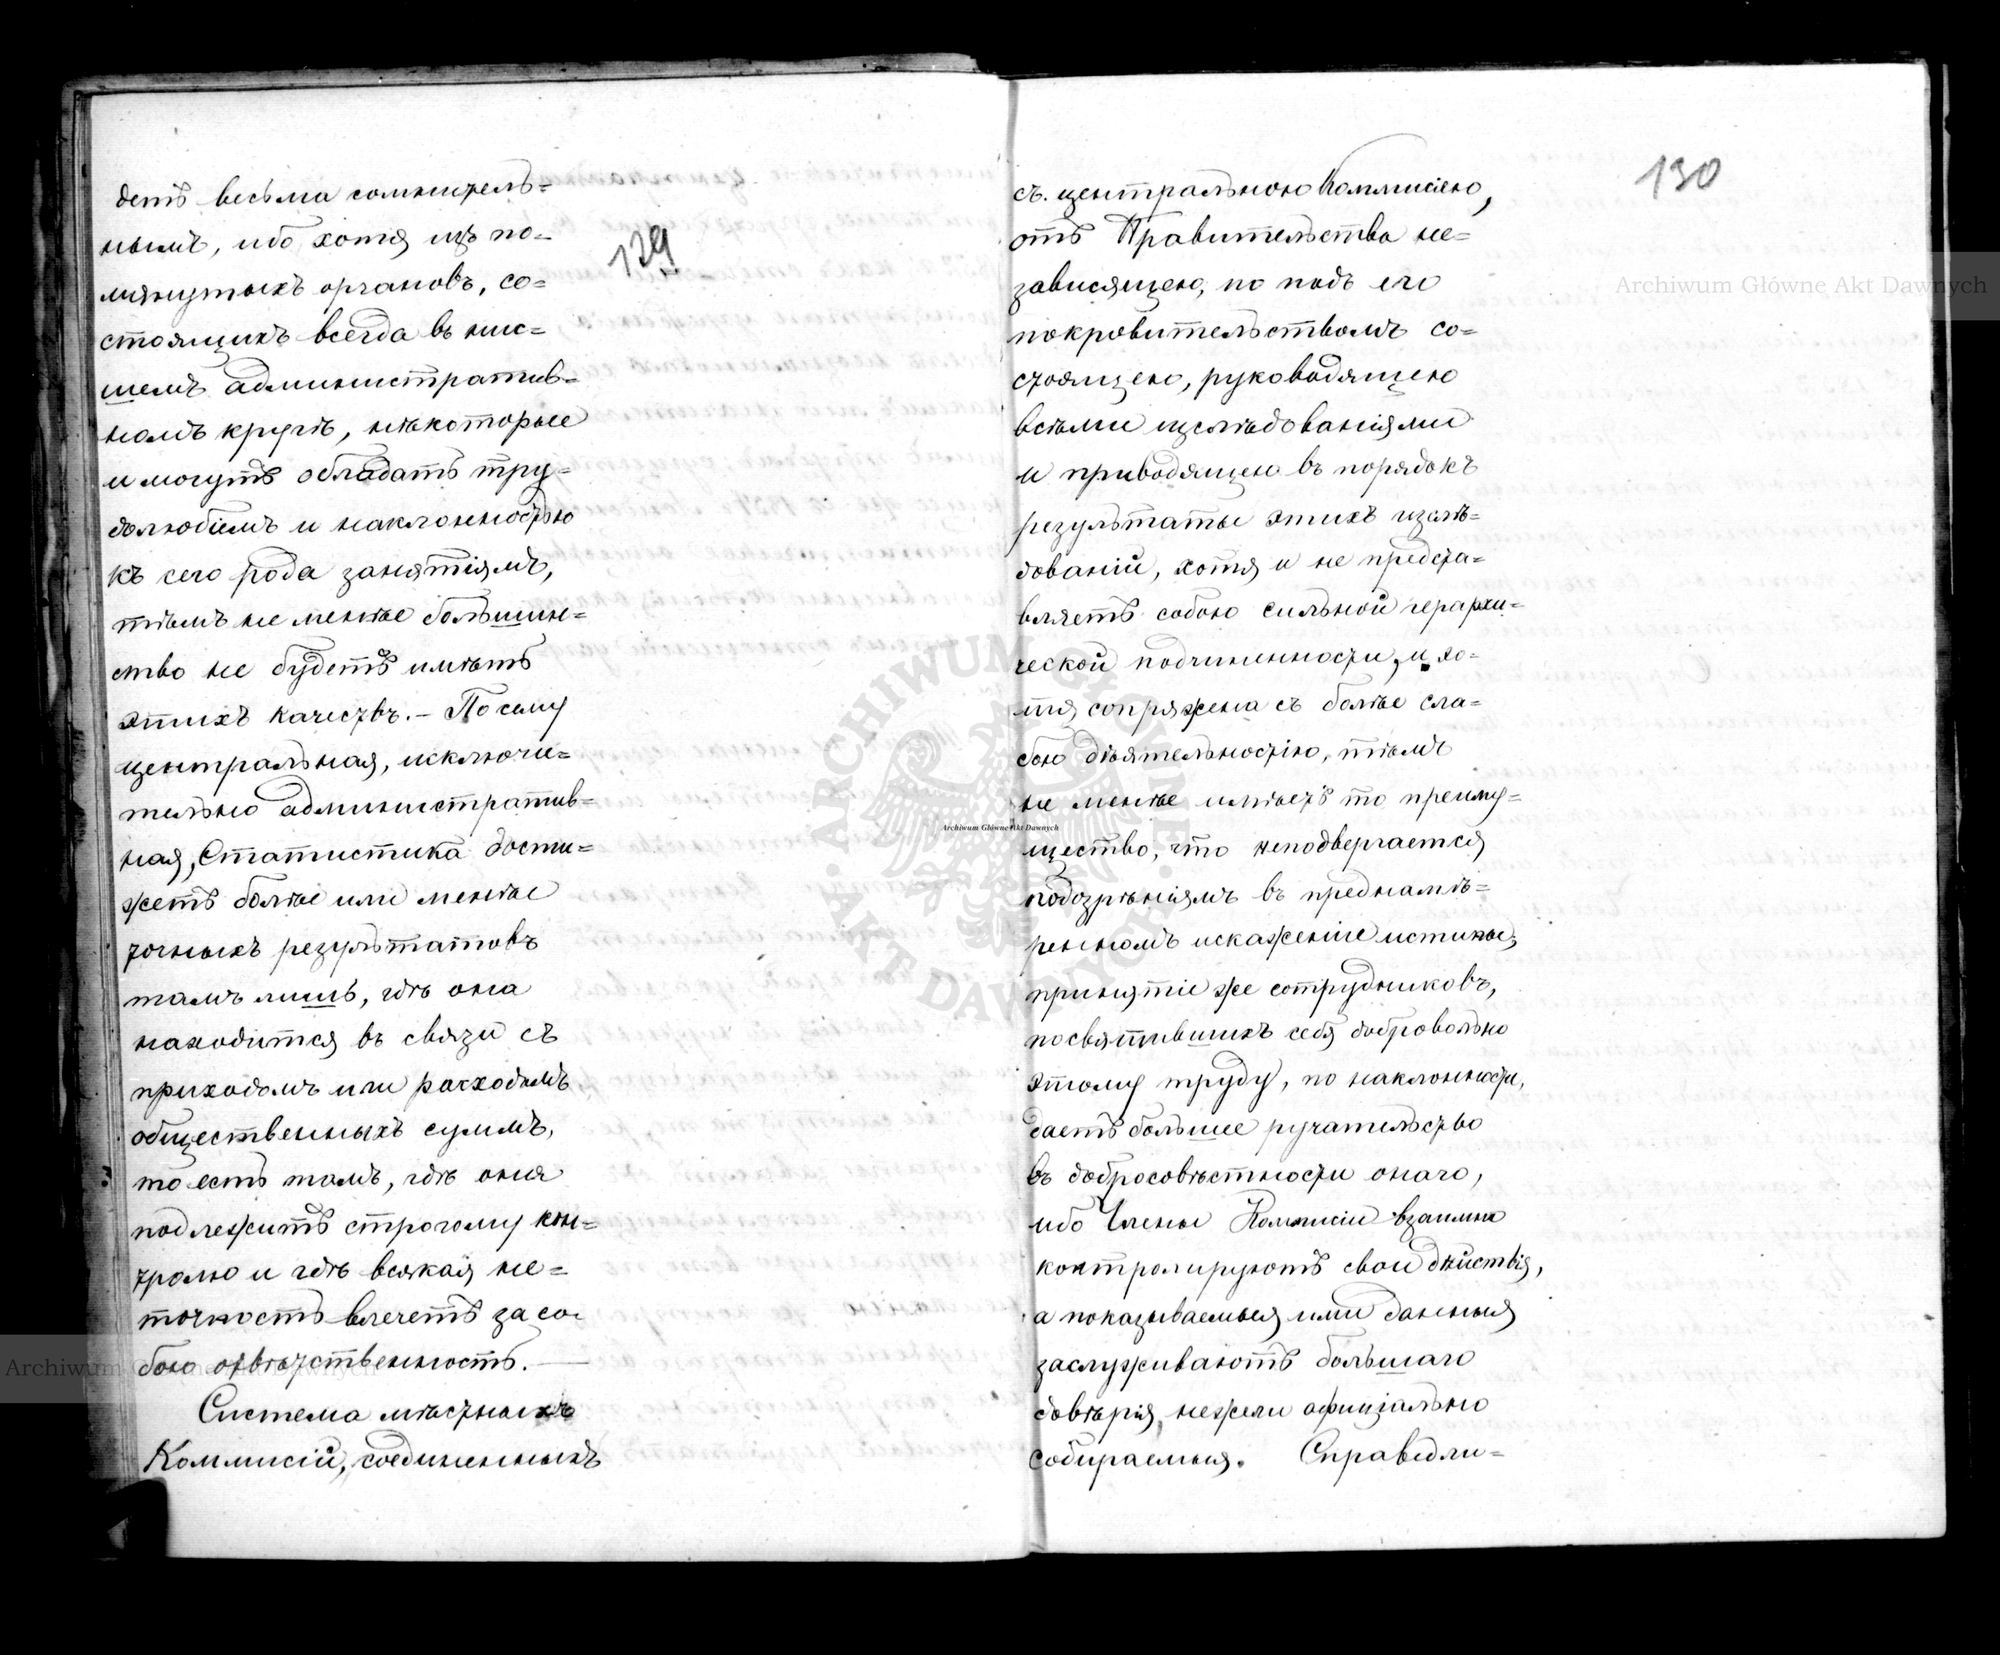 129
детъ весьма сомнитель=
нымъ, ибо хотя изъ по=
мянутыхъ органовъ, со=
стоящихъ всегда въ нис=
шемъ административ=
номъ кругѣ, нѣкоторые
и могутъ обладать тру=
долюбіемъ и наклонностью
къ сего рода занятіямъ,
тѣмъ не менѣе большин=
ство не будетъ имѣть
этихъ качествъ. — Посему
центральная, исключи=
тельно административ=
ная, Статистика дости=
жетъ болѣе или менѣе
точныхъ результатовъ
тамъ лишь, гдѣ она
находится въ связи съ
приходомъ или расходомъ
общественныхъ суммъ,
то есть тамъ, гдѣ она
подлежитъ строгому кон=
тролю и гдѣ всякая не=
точность влечетъ за со=
бою отвѣтственность. —
Система мѣстныхъ
Коммисій, соединенныхъ
130
съ центральною Коммисіею,
отъ Правительства не=
зависящею, но подъ его
покровительствомъ со=
стоящею, руководящею
всѣми изслѣдованіями
и приводящею въ порядокъ
результаты этихъ изслѣ=
дованій, хотя и не предста=
вляетъ собою сильной іерархи=
ческой подчиненности, и хо=
тя сопряжена съ болѣе сла=
бою дѣятельностію, тѣмъ
не менѣе имѣетъ то преиму=
щество, что неподвергается
подозрѣніямъ въ преднамѣ=
ренномъ искаженіе истины;
принятіе же сотрудниковъ,
посвятившихъ себя добровольно
этому труду, по наклонности,
даетъ большее ручательство
въ добросовѣстности онаго,
ибо Члены Коммисіи взаимно
контролируютъ свои дѣйствія,
а показываемыя ими данныя
заслуживаютъ большаго
довѣрія, нежели офиціально
собираемыя. Справедли=
Archiwum Główne Akt Dawnych
Archiwum Główne Akt Dawnych
Archiwum Główne Akt Dawnych